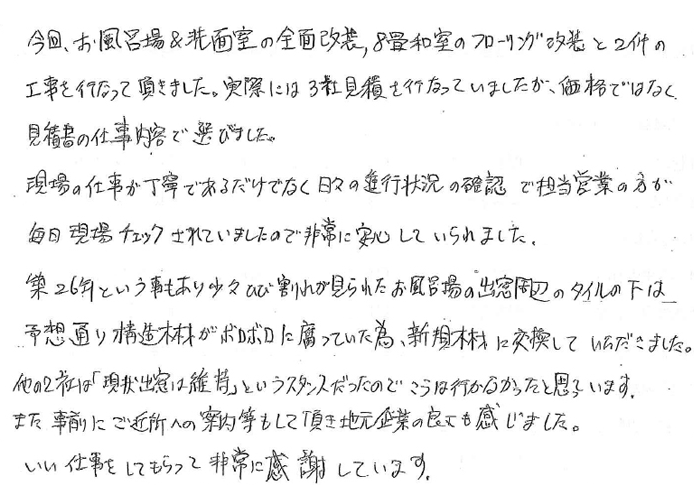 今回、お風呂場&洗面室の全面改装,8畳和室のフローリング改装と2件の
工事を行なって頂きました。実際には3社見積を行なっていましたが、価格ではなく
見積書の仕事内容で選びました。
現場の仕事が丁寧であるだけでなく日々の進行状況の確認で担当営業の方が
毎日現場チェックされていましたので非常に安心していられました.
築26年という事もあり少々ひび割れが見られたお風呂場の出窓周辺のタイルの下は
予想通り構造木材がボロボロに腐っていた為、新規木材に交換していただきました。
他の2社は「現状出窓は維持」というスタンスだったのでこうは行かなかったと思います.
また事前にご近所への案内等もして頂き地元企業の良さも感じました。
いい仕事をしてもらって非常に感謝しています.